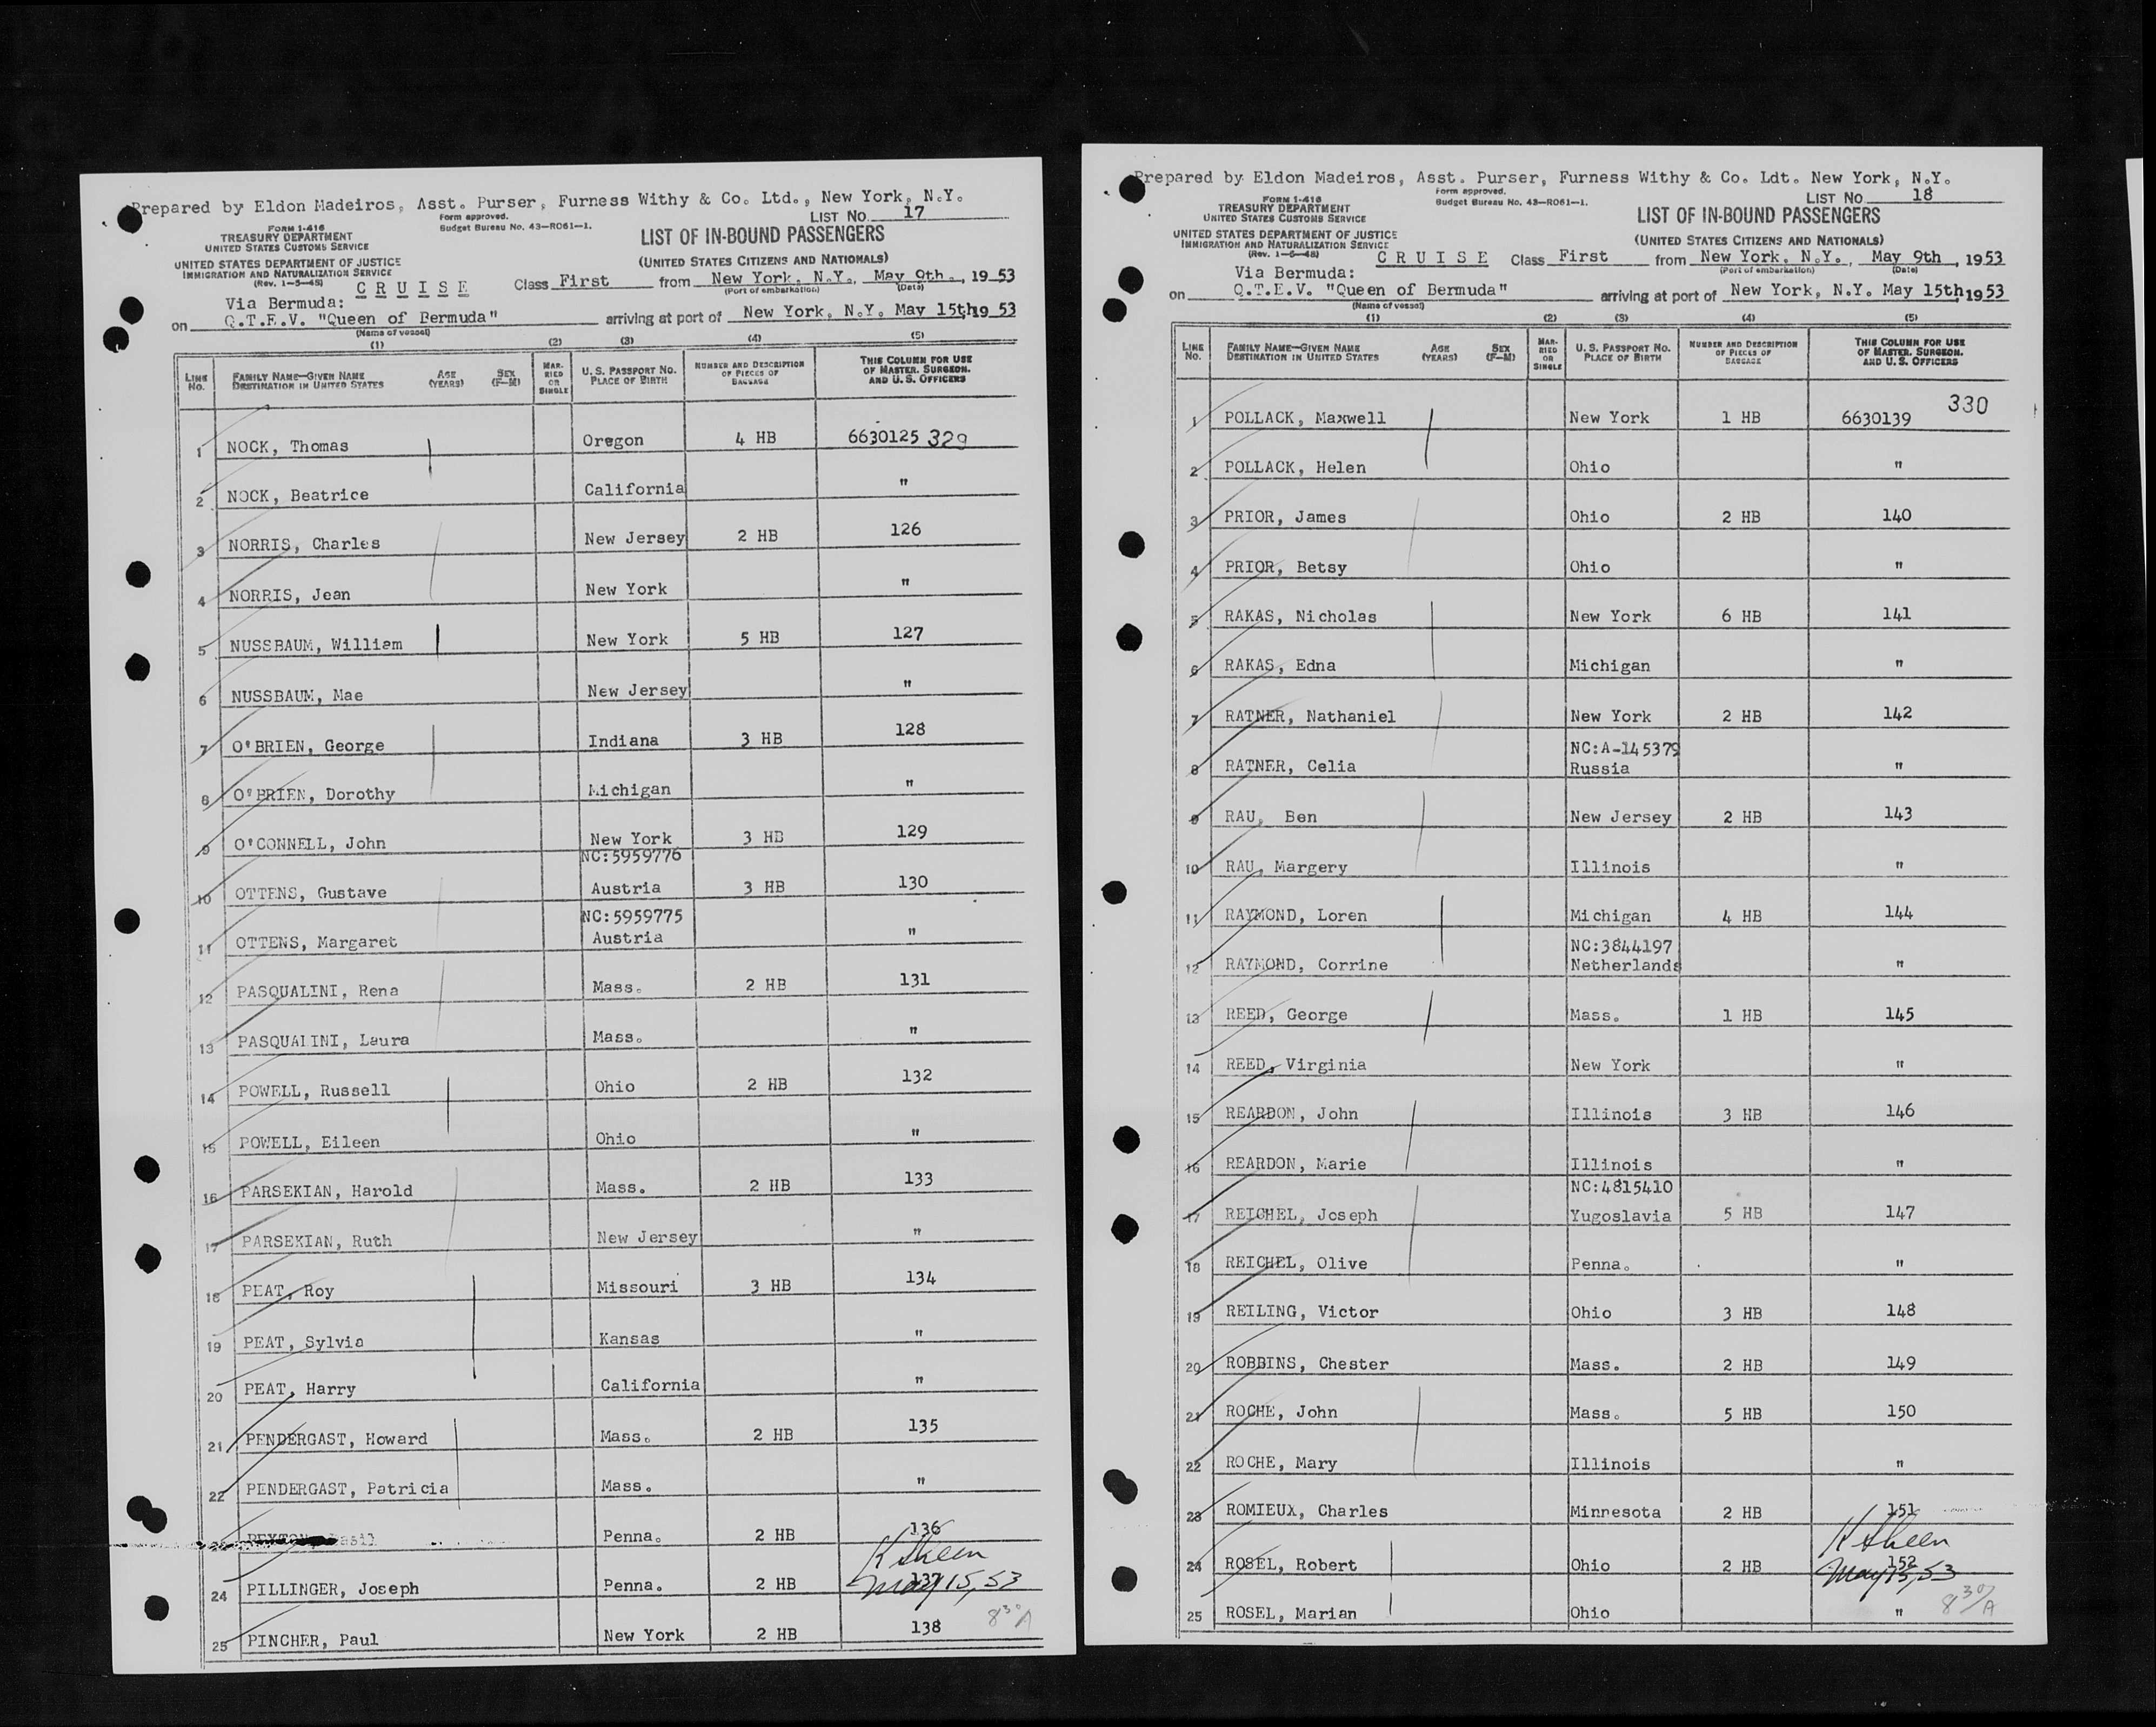 Prepared by Eldon Madeiros, Asst. Purser, Furness Withy & Co. Ltd., New York, N.Y.
Form approved.
Budget Bureau No. 43-R061-1.
LIST No. 17
FORM I-416
TREASURY DEPARTMENT
UNITED STATES CUSTOMS SERVICE
UNITED STATES DEPARTMENT OF JUSTICE
IMMIGRATION AND NATURALIZATION SERVICE
(Rev. 1-5-48)
LIST OF IN-BOUND PASSENGERS
(UNITED STATES CITIZENS AND NATIONALS)
C R U I S E Class First from New York, N.Y., May 9th., 1953
(Port of embarkation) (Date)
Via Bermuda:
on Q.T.E.V. "Queen of Bermuda" arriving at port of New York, N.Y. May 15th 1953
(Name of vessel)
(1) (2) (3) (4) (5)
LINE No. FAMILY NAME—GIVEN NAME DESTINATION IN UNITED STATES AGE (YEARS) SEX (F—M) MARRIED OR SINGLE U. S. PASSPORT No. PLACE OF BIRTH NUMBER AND DESCRIPTION OF PIECES OF BAGGAGE THIS COLUMN FOR USE OF MASTER, SURGEON, AND U. S. OFFICERS
1 NOCK, Thomas Oregon 4 HB 6630125 329
2 NOCK, Beatrice California "
3 NORRIS, Charles New Jersey 2 HB 126
4 NORRIS, Jean New York "
5 NUSSBAUM, William New York 5 HB 127
6 NUSSBAUM, Mae New Jersey "
7 O'BRIEN, George Indiana 3 HB 128
8 O'BRIEN, Dorothy Michigan "
9 O'CONNELL, John New York 3 HB 129
NC:5959776
10 OTTENS, Gustave Austria 3 HB 130
NC:5959775
11 OTTENS, Margaret Austria "
12 PASQUALINI, Rena Mass. 2 HB 131
13 PASQUALINI, Laura Mass. "
14 POWELL, Russell Ohio 2 HB 132
15 POWELL, Eileen Ohio "
16 PARSEKIAN, Harold Mass. 2 HB 133
17 PARSEKIAN, Ruth New Jersey "
18 PEAT, Roy Missouri 3 HB 134
19 PEAT, Sylvia Kansas "
20 PEAT, Harry California "
21 PENDERGAST, Howard Mass. 2 HB 135
22 PENDERGAST, Patricia Mass. "
Penna. 2 HB 136
24 PILLINGER, Joseph Penna. 2 HB 137
May 15, 53
25 PINCHER, Paul New York 2 HB 138
8 30 A
Prepared by Eldon Madeiros, Asst. Purser, Furness Withy & Co. Ldt. New York, N.Y.
Form approved.
Budget Bureau No. 43-R061-1.
LIST No. 18
FORM I-416
TREASURY DEPARTMENT
UNITED STATES CUSTOMS SERVICE
UNITED STATES DEPARTMENT OF JUSTICE
IMMIGRATION AND NATURALIZATION SERVICE
(Rev. 1-5-48)
LIST OF IN-BOUND PASSENGERS
(UNITED STATES CITIZENS AND NATIONALS)
C R U I S E Class First from New York, N.Y., May 9th, 1953
(Port of embarkation) (Date)
Via Bermuda:
on Q.T.E.V. "Queen of Bermuda" arriving at port of New York, N.Y. May 15th 1953
(Name of vessel)
(1) (2) (3) (4) (5)
LINE No. FAMILY NAME—GIVEN NAME DESTINATION IN UNITED STATES AGE (YEARS) SEX (F—M) MARRIED OR SINGLE U. S. PASSPORT No. PLACE OF BIRTH NUMBER AND DESCRIPTION OF PIECES OF BAGGAGE THIS COLUMN FOR USE OF MASTER, SURGEON, AND U. S. OFFICERS
330
1 POLLACK, Maxwell New York 1 HB 6630139
2 POLLACK, Helen Ohio "
3 PRIOR, James Ohio 2 HB 140
4 PRIOR, Betsy Ohio "
5 RAKAS, Nicholas New York 6 HB 141
6 RAKAS, Edna Michigan "
7 RATNER, Nathaniel New York 2 HB 142
NC:A-145379
8 RATNER, Celia Russia "
9 RAU, Ben New Jersey 2 HB 143
10 RAU, Margery Illinois "
11 RAYMOND, Loren Michigan 4 HB 144
NC:3844197
12 RAYMOND, Corrine Netherlands "
13 REED, George Mass. 1 HB 145
14 REED, Virginia New York "
15 REARDON, John Illinois 3 HB 146
16 REARDON, Marie Illinois "
NC:4815410
17 REICHEL, Joseph Yugoslavia 5 HB 147
18 REICHEL, Olive Penna. "
19 REILING, Victor Ohio 3 HB 148
20 ROBBINS, Chester Mass. 2 HB 149
21 ROCHE, John Mass. 5 HB 150
22 ROCHE, Mary Illinois "
23 ROMIEUX, Charles Minnesota 2 HB 151
24 ROSEL, Robert Ohio 2 HB 152
May 15, 53
25 ROSEL, Marian Ohio "
8 30 A